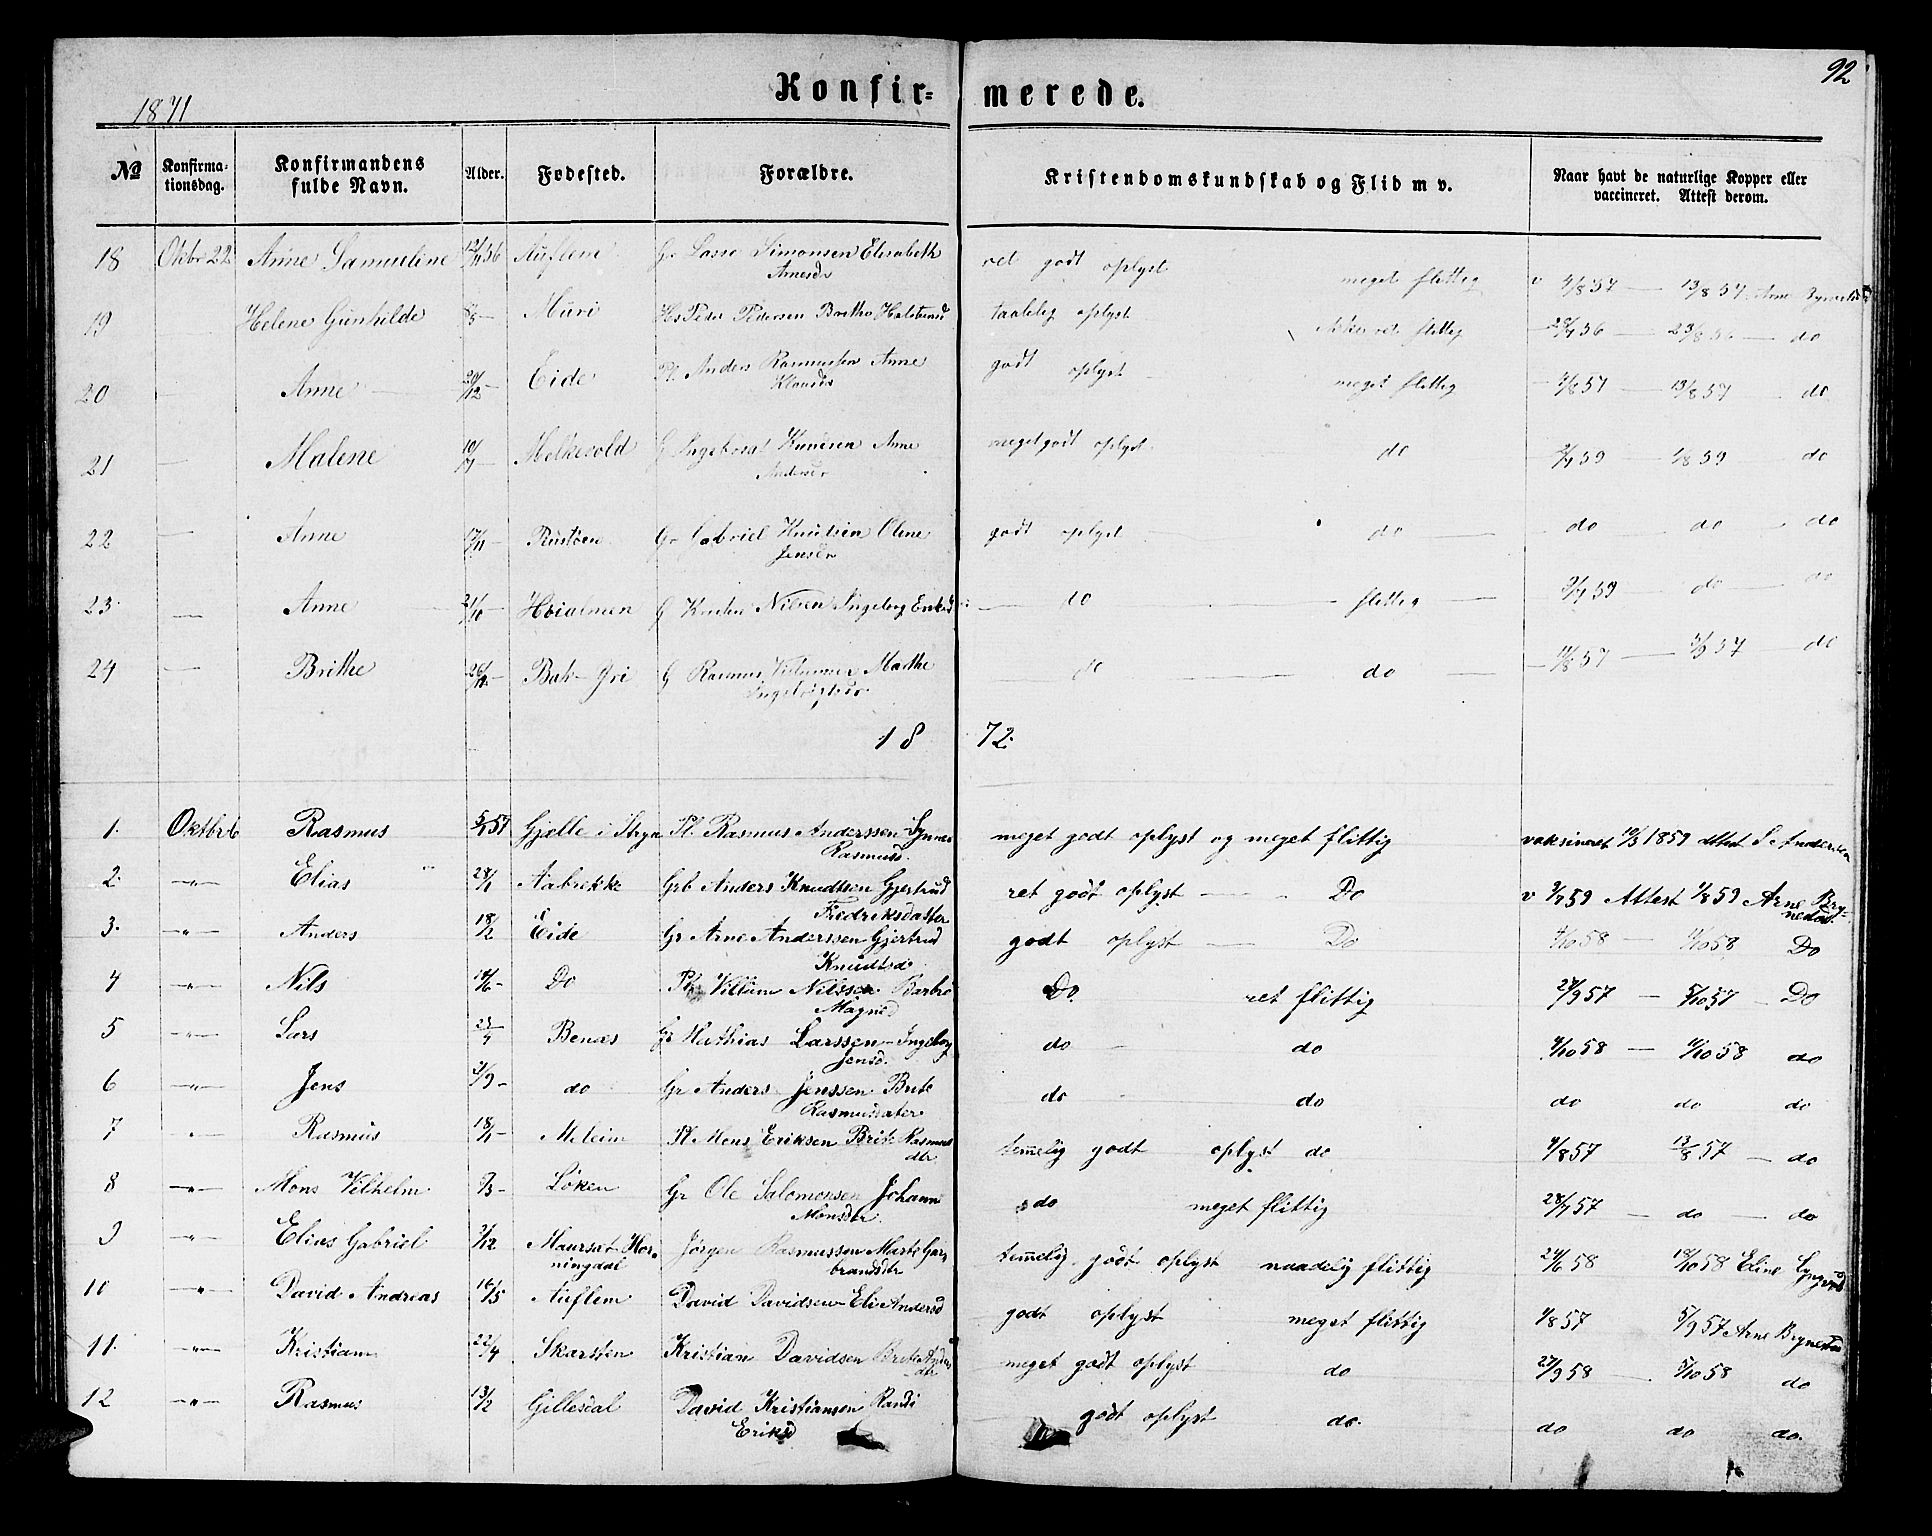 92
1871
Konfir- merede.
№ Konfirmationsdag. Konfirmandens fulde Navn. Alder. Fødested. Forældre. Kristendomskundskab og Flid m v. Naar havt de naturlige Kopper eller vaccineret. Attest derom.
18 Oktbr 22 Anne Samueline 56 Auflem Gr Lasse Simonsen Elisabeth ret godt oplyst meget flittig v 4/8 57 — 13/8 57 Arne
Arnesdr
19 Helene Gunhilde — Muri Hs Peder Pedersen Brithe taalelig oplyst flittig 56 — 23/8 56 — do
20 — Anne 20/12 — Eide Pl. Anders Rasmussen Anne godt oplyst meget flittig — 4/8 57 — 13/8 57 — do
Klausdr
21 — Malene 10/7 — Melkevold G Knudsen Anne meget godt oplyst do 2/7 59 — 1/8 59 — do
Andersdr
22 — Anne 17/11 Rustøen Gr Gabriel Knutsen Oline godt oplyst do — do — do do
Jensdr
23 — Anne 21/10 Høialmen G Nilsen Ingeborg — do — flittig — 2/7 59 do — do
24 — Brithe 26/12 — G Rasmus Marthe do — do — 57 — 57 — do
18 72
1. Oktbr 6 Rasmus 5/7 57 Gjelle i Stryn Pl. Rasmus Anderssen Synnev meget godt oplyst og meget flittig vaksineret 10/3 1859 attest S. Andersen
Rasmusd.
2. —"— Elias 28/1 Aabrekke Grb Anders Knudtsen Gjertrud ret godt oplyst — Do v 2/7 59 Attest 1/8 59 Arne Bry-
Fredriksdatter nestad.
3. —"— Anders 18/2 Eide Gr Arne Anderssen Gjertrud godt oplyst — Do 4/10 58 — 11/10 58 Do
Knudtsd.
4 —"— Nils 14/6 — Do Pl. Villum Nilssen Barbro Do. ret flittig 27/9 57 — 5/10 57 — Do
Magned
5 —"— Lars 23/4 Benæs Gr Mathias Larssen Ingeborg do — do 4/10 58 — 11/10 58 do
Jensd.
6 —"— Jens 2/9 — do Gr Anders Jenssen Brite do do do do do
Rasmusdater
7 " Rasmus 18/1 — Meleim Pl Mons Eriksen Brite Rasmus temelig godt oplyst do 4/8 57 13/8 57 — do
dtr
8 —"— Mons Vilhelm 9/3 — Løken Gr Ole Salomonsen Johanne do meget flittig 28/7 57 — do — do
Monsdtr.
9 —"— Elias Gabriel 2/12 Maurset Hor- Jørgen Rasmussen Marte Gar- temelig godt oplyst naadelig flittig 24/6 58 18/10 58 Eline
ningdal brandsdtr
10 —"— David Andreas 16/5 Auflem David Davidsen Eli Andersd godt oplyst meget flittig 4/8 57 5/9 57 Arne Brynestad
11. —"— Kristian 22/4 Skarsten Kristian Davidsen Brite Anders meget godt oplyst do 27/9 58 — 5/10 58 do
dtr
12 —"— Rasmus 13/2 Gillesdal David Kristiansen Randi godt oplyst do. do do do.
Eriksd